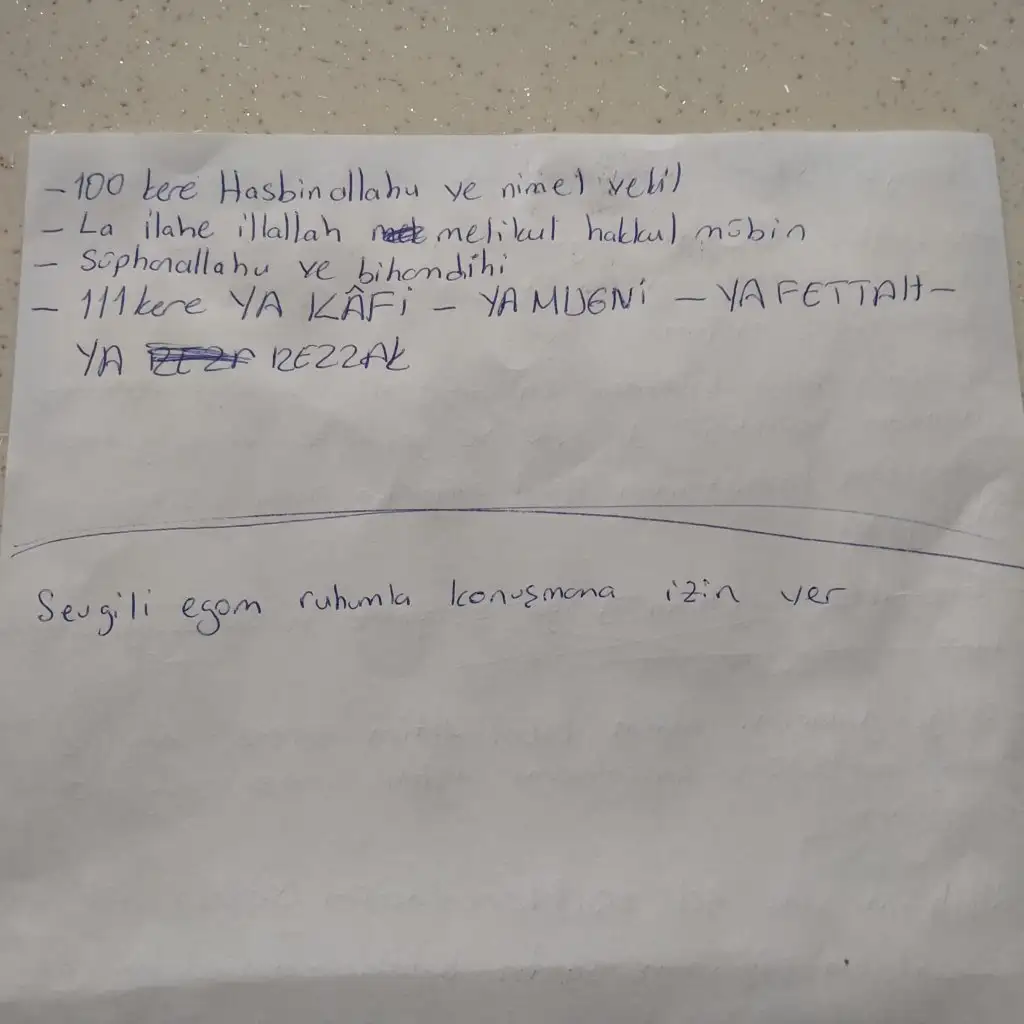 - 100 kere Hasbinallahu ve nimel vekil
- La ilahe illallah melikul hakkul mübin
- Süphanallahu ve bihamdihi
- 111 kere YA KÂFİ - YA MUGNİ - YA FETTAH -
YA REZZAK
Sevgili egom ruhumla konuşmana izin ver